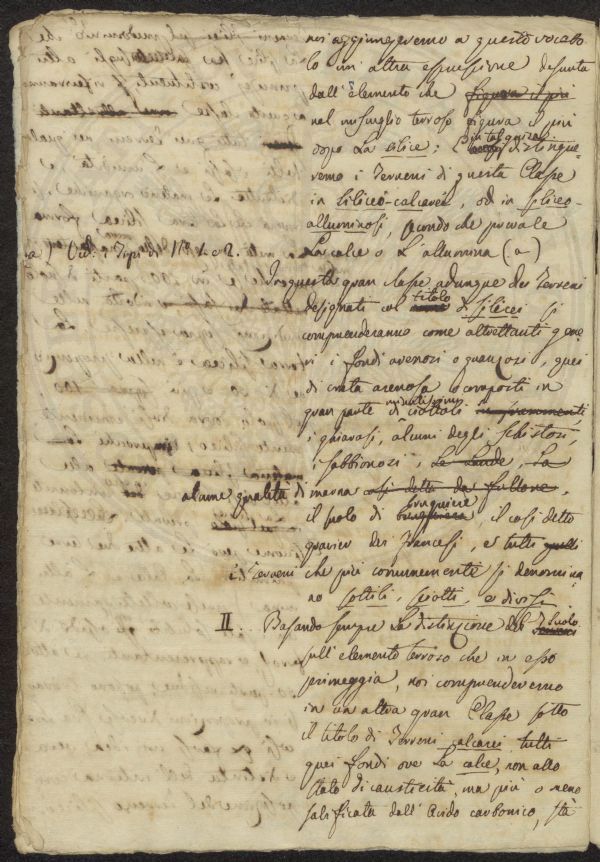 noi aggiungeremo a questo vocabo
lo un altra espressione desunta
dall'elemento che figura il più
nel miscuglio terroso figura il più
dopo La silice: E in tal guisa distingue
remo i Terreni di questa Classe
in siliceo-calcarei, od in siliceo-
alluminosi, secondo che prevale
La calce o L'allumina (a)
(a) Vid. i Tipi di N.° 1. e 2.
In questa gran classe adunque dei Terreni
designati col titolo di silicei si
comprenderanno come altrettanti gene
ri i fondi arenosi o quarzosi, quei
di creta arenosa o composti in
gran parte di minutissimi ciottoli
i ghiarosi, alcuni degli schistosi,
i sabbionosi, Le Lande, La
alcune qualità di marna così detta da fullone,
il suolo di brughiere, il così detto
gravier dei Francesi, e tutti quelli
i Terreni che più comunemente si denomina
no sottili, sciolti, e diversi
II... Basando sempre La distinzione del Suolo
sull'elemento terroso che in esso
primeggia, noi comprenderemo
in un altra gran Classe sotto
il titolo di Terreni calcarei tutti
quei fondi ove La calce, non allo
stato di causticità, ma più o meno
salificata dall'Acido carbonico, stà